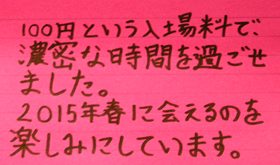 100円という入場料で、
濃密な時間を過ごせ
ました。
2015年春に会えるのを
楽しみにしています。